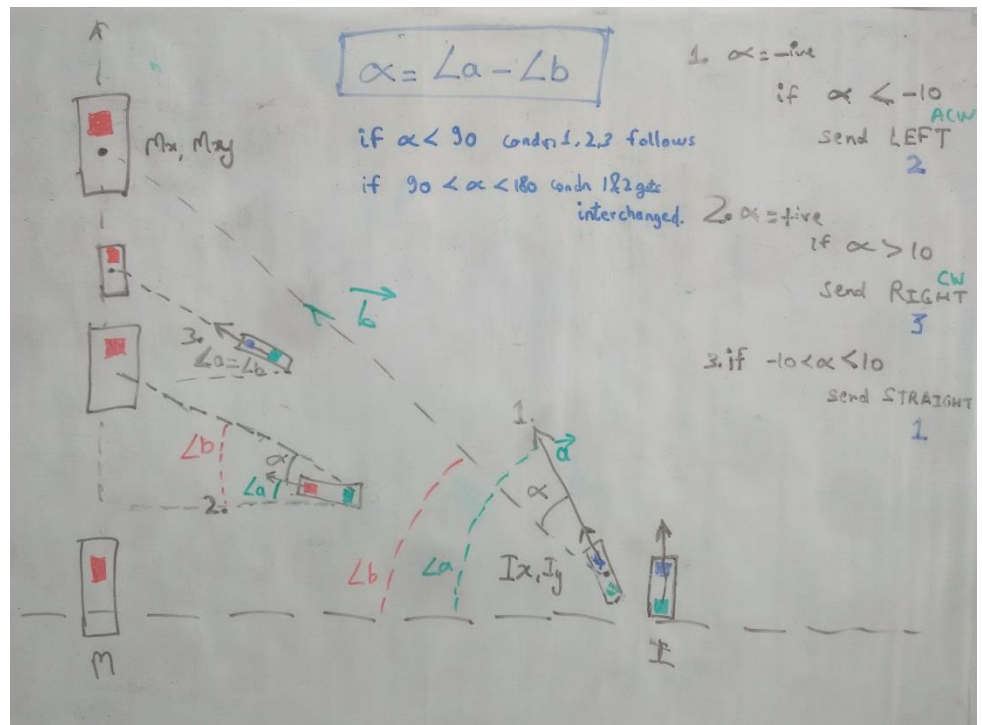 α = ∠a - ∠b
if α < 90 condn 1, 2, 3 follows
if 90 < α < 180 condn 1&2 gets
interchanged.
1. α = -ive
if α < -10
ACW
send LEFT
2
2. α = +ive
if α > 10
CW
send RIGHT
3
3. if -10 < α < 10
send STRAIGHT
1
Mx, Mxy
b
3.
∠a = ∠b
∠b
α
∠a
2.
1.
a
α
∠b
∠a
Ix, Iy
M
I